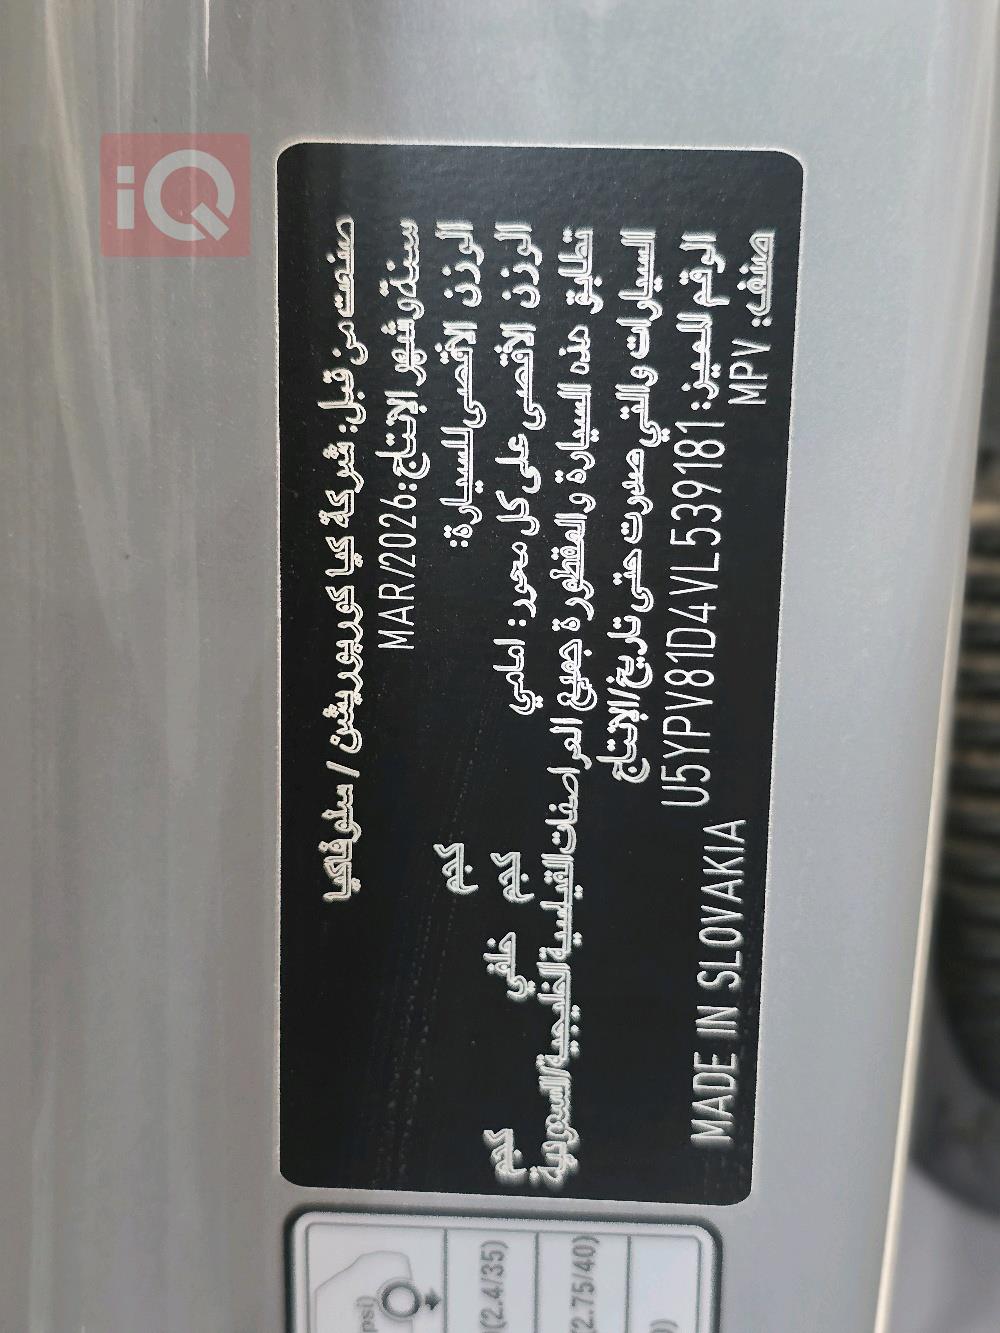 iQ
صنعت من قبل: شركة كيا كوربوريشن / سلوفاكيا
سنة وشهر الإنتاج: MAR/2026
الوزن الاقصى للسيارة: كجم
الوزن الاقصى على كل محور: امامي كجم خلفي كجم
تطابق هذه السيارة والمقطورة جميع المواصفات القياسية الخليجية/السعودية
السيارات والتي صدرت حتى تاريخ/الإنتاج
الرقم المميز: U5YPV81D4VL539181
صنف: MPV MADE IN SLOVAKIA
psi)
(2.4/35)
(2.75/40)